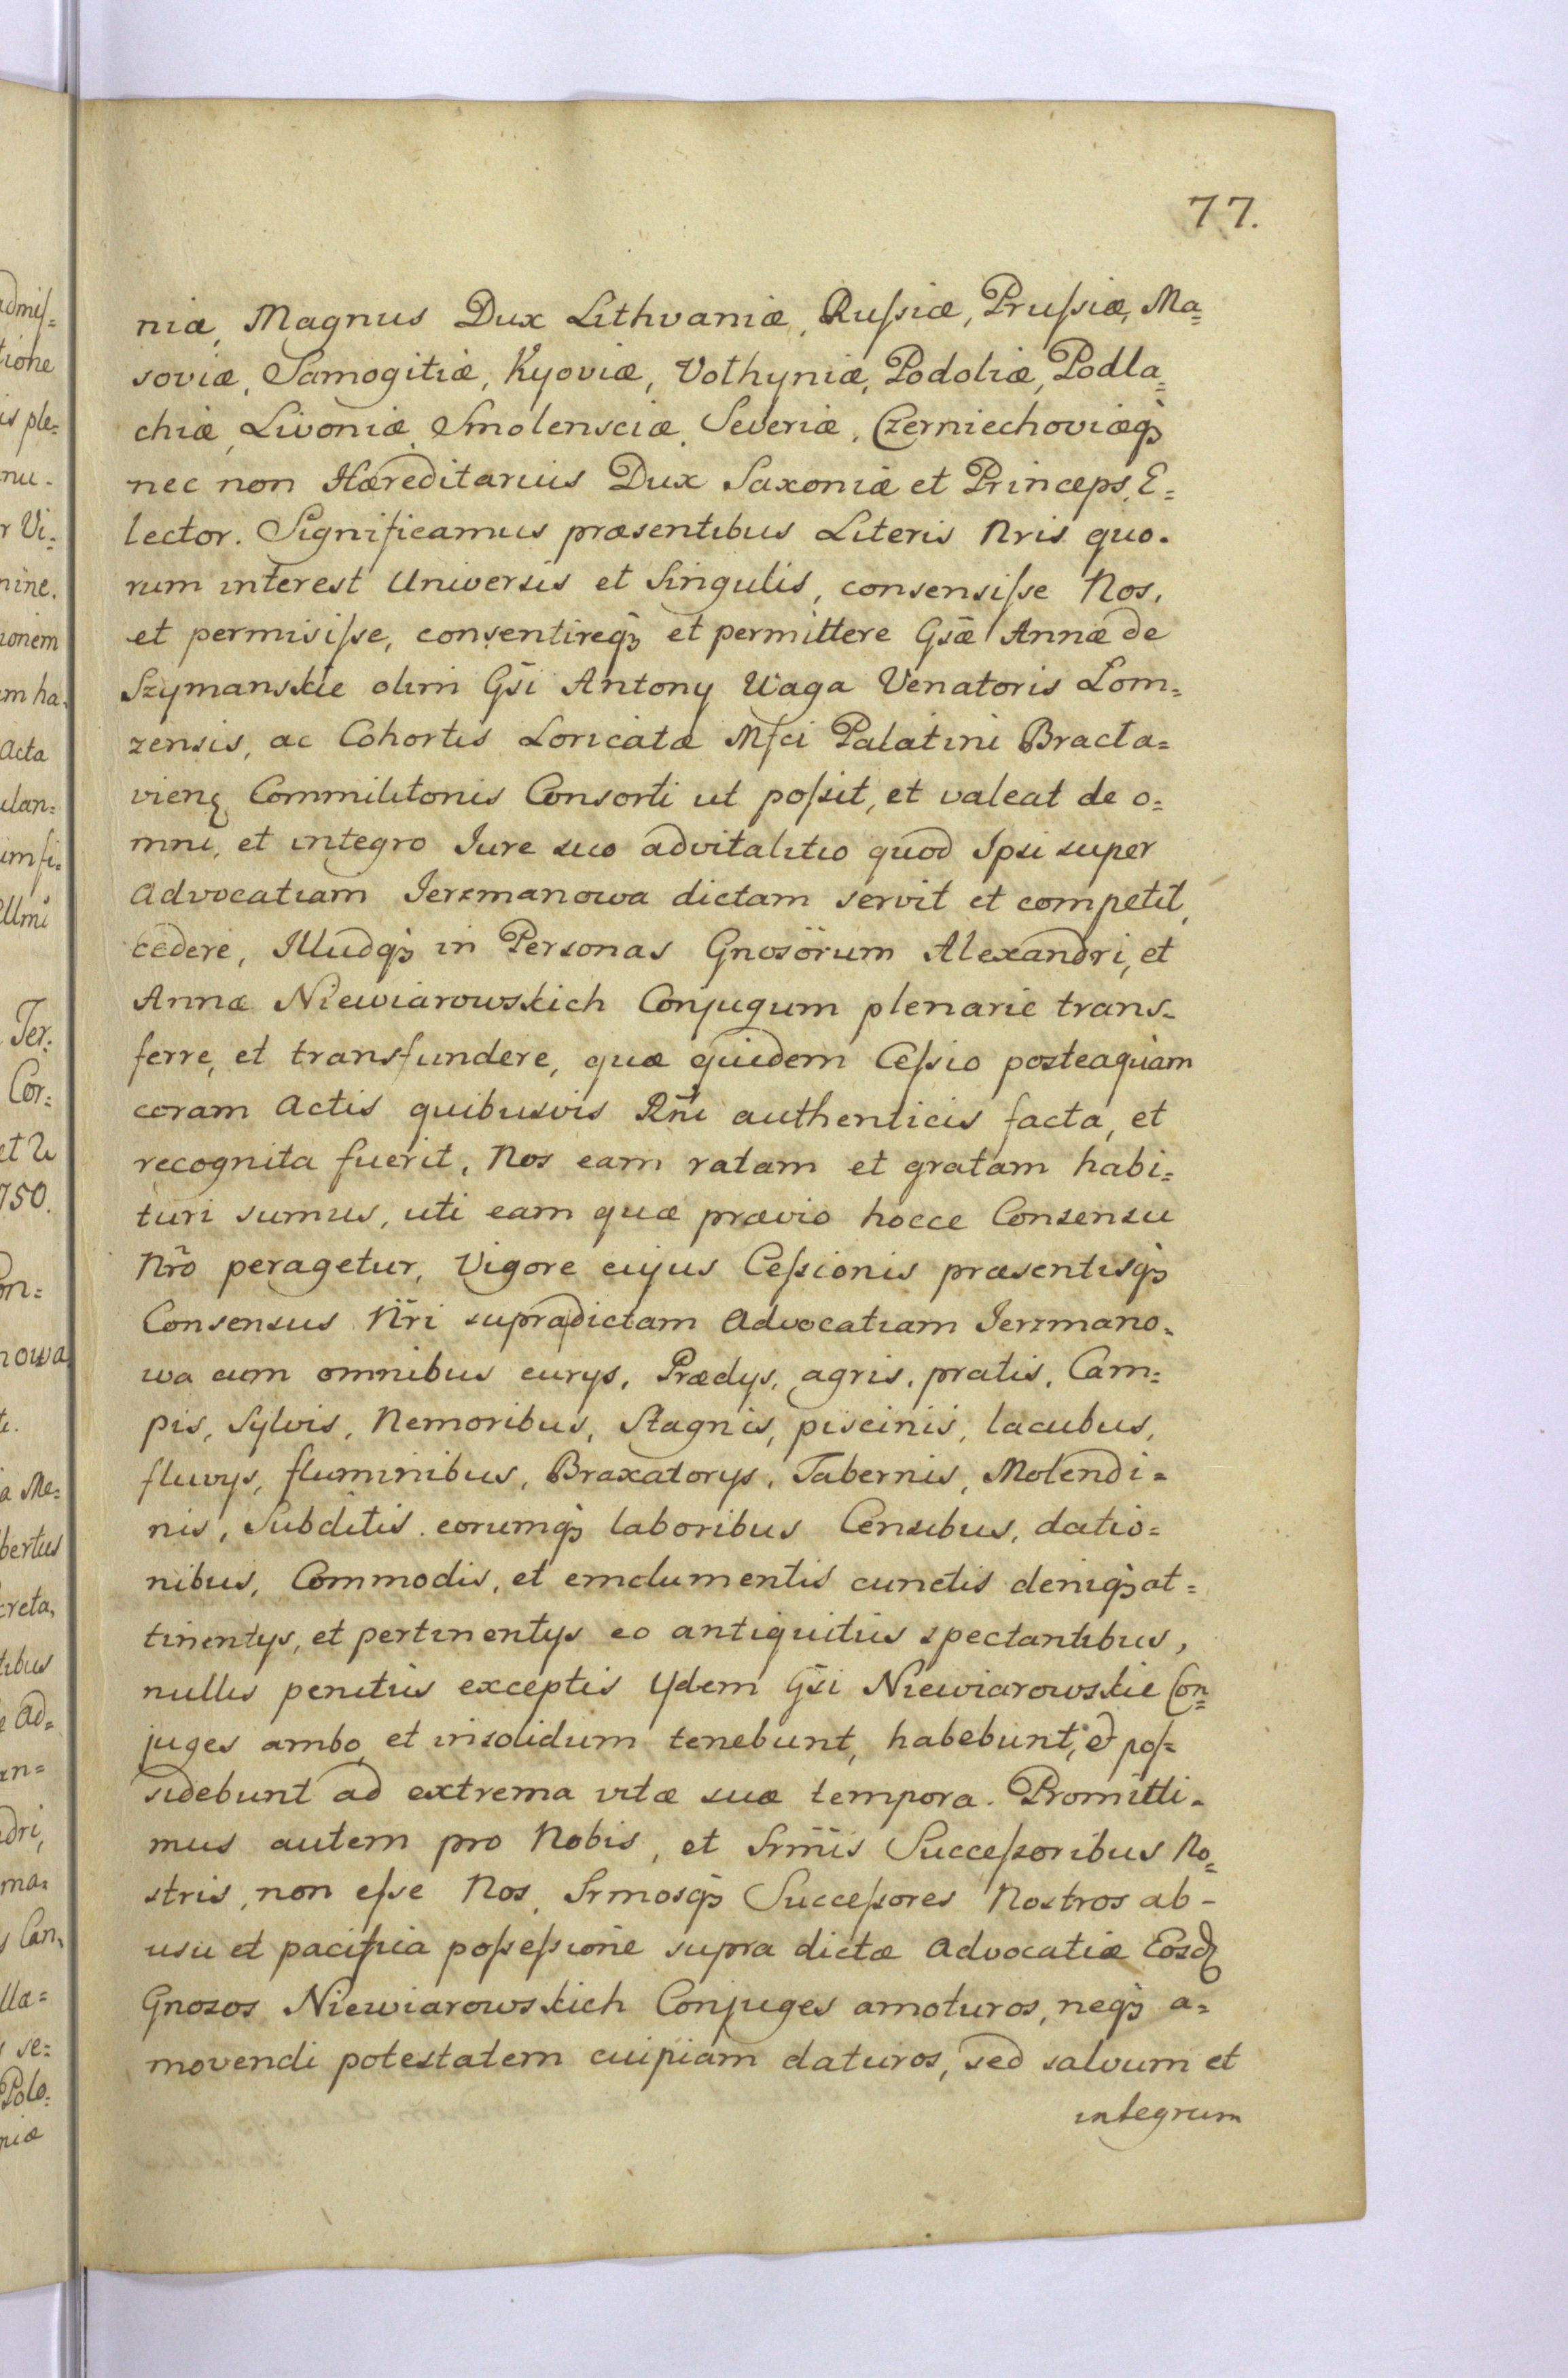 77.
niæ, Magnus Dux Lithvaniæ, Rußiæ, Prußiæ, Ma=
soviæ, Samogitiæ, Kyoviæ, Volhyniæ, Podoliæ, Podla=
chiæ, Livoniæ, Smolensciæ, Severiæ, Czerniechoviæq3
nec non Hæreditarius Dux Saxoniæ et Princeps, E=
lector. Significamus præsentibus Literis Nris quo=
rum interest Universis et Singulis, consensiße Nos,
et permisiße, consentireq3 et permittere Gsæ Annæ de
Szymanskie olim Gsi Antony Waga Venatoris Lom=
zensis, ac Cohortis Loricatæ Mfci Palatini Bracta=
vien Commilitonis Consorti ut poßit, et valeat de o=
mni, et integro Iure suo advitalitio quod Ipsi super
Advocatiam Ierzmanowa dictam servit et competit,
cedere, Illudq3 in Personas Gnosorum Alexandri, et
Annæ Niewiarowskich Conjugum plenarie trans=
ferre, et transfundere, quæ quidem Ceßio posteaquam
coram Actis quibusvis Rni authenticis facta, et
recognita fuerit, Nos eam ratam et gratam habi=
turi sumus, uti eam quæ prævio hocce Consensu
Nro peragetur, Vigore cujus Ceßionis præsentisq3
Consensus Nri supradictam Advocatiam Ierzmano=
wa cum omnibus curys, Prædys, agris, pratis, Cam=
pis, Sylvis, Nemoribus, Stagnis, piscinis, lacubus,
fluvys, fluminibus, Braxatorys, Tabernis, Molendi=
nis, Subditis eorumq3 laboribus Censibus, datio=
nibus, Commodis, et emolumentis cunctis deniq3 at=
tinentys, et pertinentys eo antiquitus spectantibus,
nullis penitus exceptis Ydem Gsi Niewiarowskie Con=
juges ambo, et insolidum tenebunt, habebunt, et pos=
sidebunt ad extrema vitæ suæ tempora. Promitti=
mus autem pro Nobis, et Srmis Succeßoribus No=
stris, non eße Nos, Srmosq3 Succeßores Nostros ab-
usu et pacifica poßeßione supra dictæ Advocatiæ Eosd
Gnosos Niewiarowskich Conjuges amoturos, neq3 a=
movendi potestatem cuipiam daturos, sed salvum et
integrum